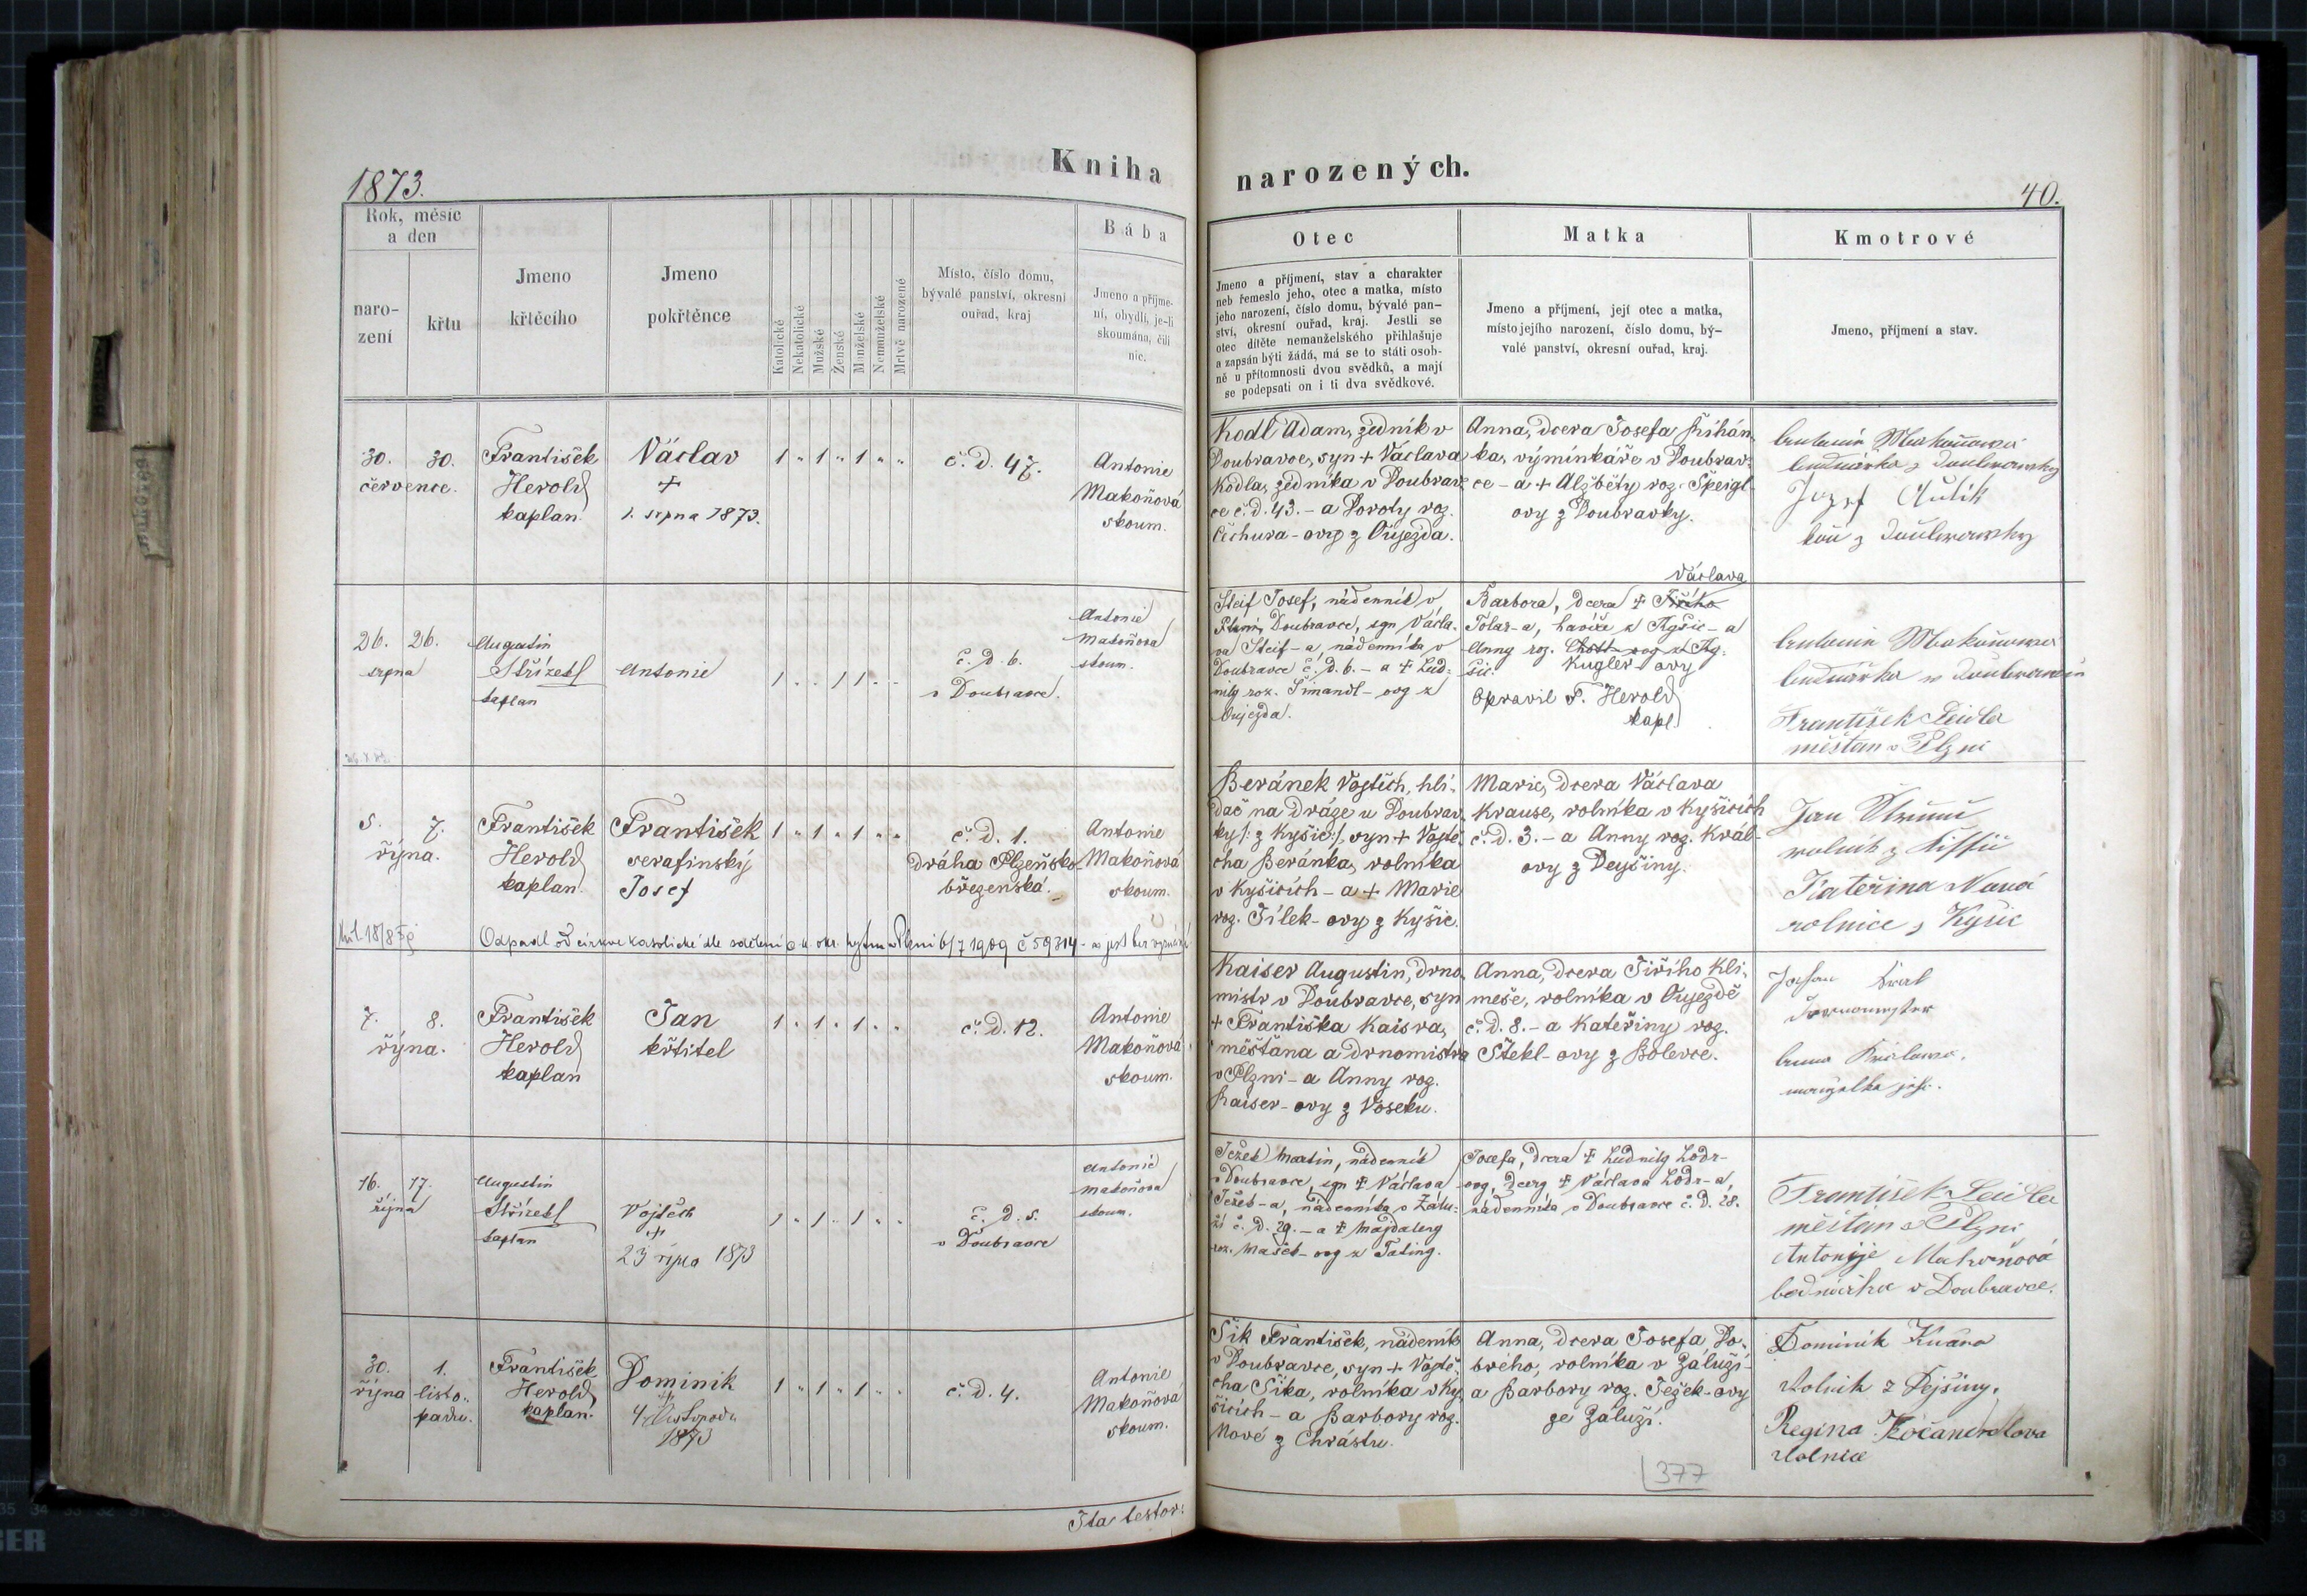 Kniha
narozených.
1873.
40.
Rok, měsíc
a den
naro-
zení
křtu
Jmeno
křtěcího
Jmeno
pokřtěnce
Katolické
Nekatolické
Mužské
Ženské
Manželské
Nemanželské
Mrtvě narozené
Místo, číslo domu,
bývalé panství, okresní
ouřad, kraj
Bába
Jmeno a příjme-
ní, obydlí, je-li
skoumána, čili
nic.
Otec
Jmeno a příjmení, stav a charakter
neb řemeslo jeho, otec a matka, místo
jeho narození, číslo domu, bývalé pan-
ství, okresní ouřad, kraj. Jestli se
otec dítěte nemanželského přihlašuje
a zapsán býti žádá, má se to státi osob-
ně u přítomnosti dvou svědků, a mají
se podepsati on i ti dva svědkové.
Matka
Jmeno a příjmení, její otec a matka,
místo jejího narození, číslo domu, bý-
valé panství, okresní ouřad, kraj.
Kmotrové
Jmeno, příjmení a stav.
30. 30.
července.
František
Herold
kaplan.
Václav
+
1. srpna 1873.
1 " 1 " 1 " "
č. d. 47.
Antonie
Makoňová
skoum.
Kodl Adam, zedník v
Doubravce, syn + Václava
Kodla, zedníka v Doubrav-
ce č. d. 43. - a Doroty roz.
Čichura - ovy z Oujezda.
Anna, dcera Josefa Řihán-
ka, výminkáře v Doubrav-
ce - a + Alžběty roz. Špeigl-
ovy z Doubravky.
Josef
26. 26.
srpna
Augustin
Střízek
kaplan
Antonie
1 . . 1 1 . .
č. d. 6.
v Doubravce.
Antonie
Makoňova
skoum.
Steif Josef, nádenník v
Doubravce, syn Václa-
va Steif-a, nádenníka v
Doubravce č. d. 6. - a + Lud-
mily roz. Šimandl-ovy z
Oujezda.
Václava
Barbora, dcera + Jiřího
Tolar-a, havíře z Kyšic - a
Anny roz.
Kugler-ovy
Opravil F. Herold
kapl.
František Leidler
měštan v Plzni
5. 7.
října.
František
Herold
kaplan.
František
serafinský
Josef
1 " 1 " 1 " "
č. d. 1.
dráha Plzeňsko-
březenská.
Antonie
Makoňová
skoum.
Odpadl od církve katolické dle sdělení c. k. okr. hejtm. v Plzni 6/7 1909 č 59314 - a jest bez vyznání
Beránek Vojtěch, hlí-
dač na dráze u Doubrav-
ky /: z Kyšic :/, syn + Vojtě-
cha Beránka, rolníka
v Kyšicích - a + Marie
roz. Jílek-ovy z Kyšic.
Marie, dcera Václava
Krause, rolníka v Kyšicích
č. d. 3. - a Anny roz. Král-
ovy z Dejšiny.
Jan
rolník z
Kateřina Nová
rolnice z Kyšic
7. 8.
října.
František
Herold
kaplan
Jan
křtitel
1 . 1 . 1 . .
č. d. 12.
Antonie
Makoňová
skoum.
Kaiser Augustin, drno-
mistr v Doubravce, syn
+ Františka Kaisra,
měštana a drnomistra
v Plzni - a Anny roz.
Kaiser-ovy z Voseku.
Anna, dcera Jiřího Kli-
meše, rolníka v Oujezdě
č. d. 8. - a Kateřiny roz.
Štekl-ovy z Bolevce.
manželka jeho.
16. 17.
října
Augustin
Střízek
kaplan
Vojtěch
+
23 října 1873
1 . 1 . 1 . .
č. d. 5.
v Doubravce
Antonie
Makoňova
skoum.
Ježek Martin, nádenník
v Doubravce, syn + Václava
Ježek-a, nádenníka v Zálu-
ží č. d. 29. - a + Magdaleny
roz. Mašek-ovy z Tatiny.
Josefa, dcera + Ludmily Lodr-
ovy, dcery + Václava Lodr-a,
nádenníka v Doubravce č. d. 28.
František Leidler
měštan v Plzni
Antonije Makoňová
bednářka v Doubravce.
30. 1.
října listo-
padu.
František
Herold
kaplan.
Dominik
4/ listopadu
1873
1 " 1 " 1 " "
č. d. 4.
Antonie
Makoňová
skoum.
Šik František, nádeník
v Doubravce, syn + Vojtě-
cha Šika, rolníka v Ky-
šicích - a Barbory roz.
Nové z Chrástu.
Anna, dcera Josefa Do-
brého, rolníka v Záluží -
a Barbory roz. Ježek-ovy
ze Záluží.
Dominik
Rolník z Dejšiny.
Regina Kočandrlova
Rolnice
377
Ita testor: